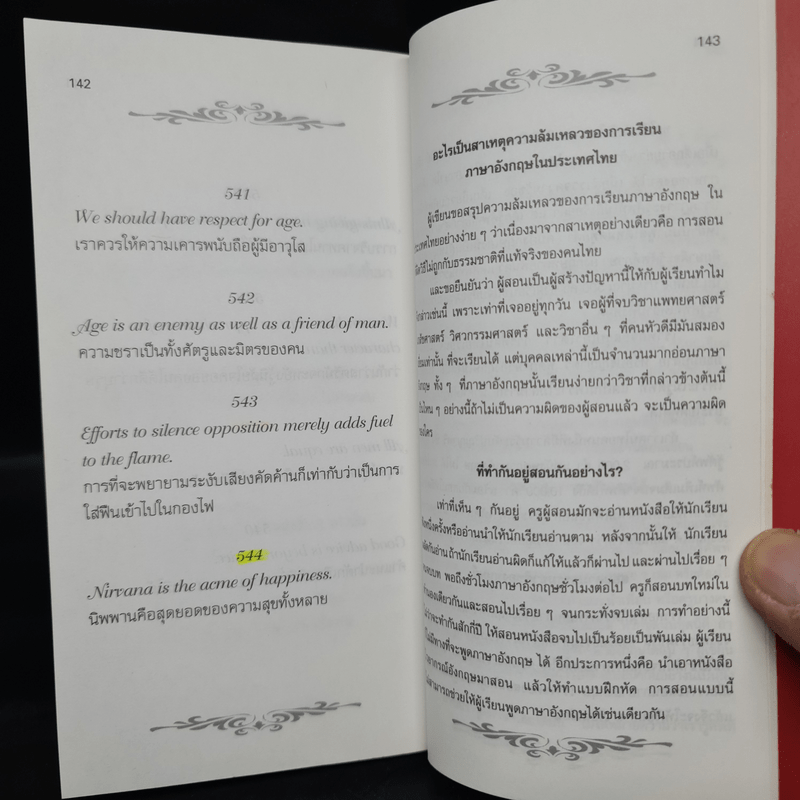 142
541
We should have respect for age.
เราควรให้ความเคารพนับถือผู้มีอาวุโส
542
Age is an enemy as well as a friend of man.
ความชราเป็นทั้งศัตรูและมิตรของคน
543
Efforts to silence opposition merely adds fuel
to the flame.
การที่จะพยายามระงับเสียงคัดค้านก็เท่ากับว่าเป็นการ
ใส่ฟืนเข้าไปในกองไฟ
544
Nirvana is the acme of happiness.
นิพพานคือสุดยอดของความสุขทั้งหลาย
143
อะไรเป็นสาเหตุความล้มเหลวของการเรียน
ภาษาอังกฤษในประเทศไทย
ผู้เขียนขอสรุปความล้มเหลวของการเรียนภาษาอังกฤษ ใน
ประเทศไทยอย่างง่าย ๆ ว่าเนื่องมาจากสาเหตุอย่างเดียวคือ การสอน
ไม่ถูกกับธรรมชาติที่แท้จริงของคนไทย
และขอยืนยันว่า ผู้สอนเป็นผู้สร้างปัญหานี้ให้กับผู้เรียนทำไม
กล่าวเช่นนี้ เพราะเท่าที่เจออยู่ทุกวัน เจอผู้ที่จบวิชาแพทยศาสตร์
วิศวกรรมศาสตร์ และวิชาอื่น ๆ ที่คนหัวดีมีมันสมอง
เท่านั้น ที่จะเรียนได้ แต่บุคคลเหล่านี้เป็นจำนวนมากอ่อนภาษา
ทั้ง ๆ ที่ภาษาอังกฤษนั้นเรียนง่ายกว่าวิชาที่กล่าวข้างต้นนี้
ๆ อย่างนี้ถ้าไม่เป็นความผิดของผู้สอนแล้ว จะเป็นความผิด
ใคร
ที่ทำกันอยู่สอนกันอย่างไร?
เท่าที่เห็น ๆ กันอยู่ ครูผู้สอนมักจะอ่านหนังสือให้นักเรียน
หนึ่งครั้งหรืออ่านนำให้นักเรียนอ่านตาม หลังจากนั้นให้ นักเรียน
กันอ่าน ถ้านักเรียนอ่านผิดก็แก้ให้แล้วก็ผ่านไป และผ่านไปเรื่อย ๆ
บท พอถึงชั่วโมงภาษาอังกฤษชั่วโมงต่อไป ครูก็สอนบทใหม่ใน
เดียวกันและสอนไปเรื่อย ๆ จนกระทั่งจบเล่ม การทำอย่างนี้
จะทำกันสักกี่ปี ให้สอนหนังสือจบไปเป็นร้อยเป็นพันเล่ม ผู้เรียน
ไม่มีทางที่จะพูดภาษาอังกฤษ ได้ อีกประการหนึ่งคือ นำเอาหนังสือ
อังกฤษมาสอน แล้วให้ทำแบบฝึกหัด การสอนแบบนี้
สามารถช่วยให้ผู้เรียนพูดภาษาอังกฤษได้เช่นเดียวกัน